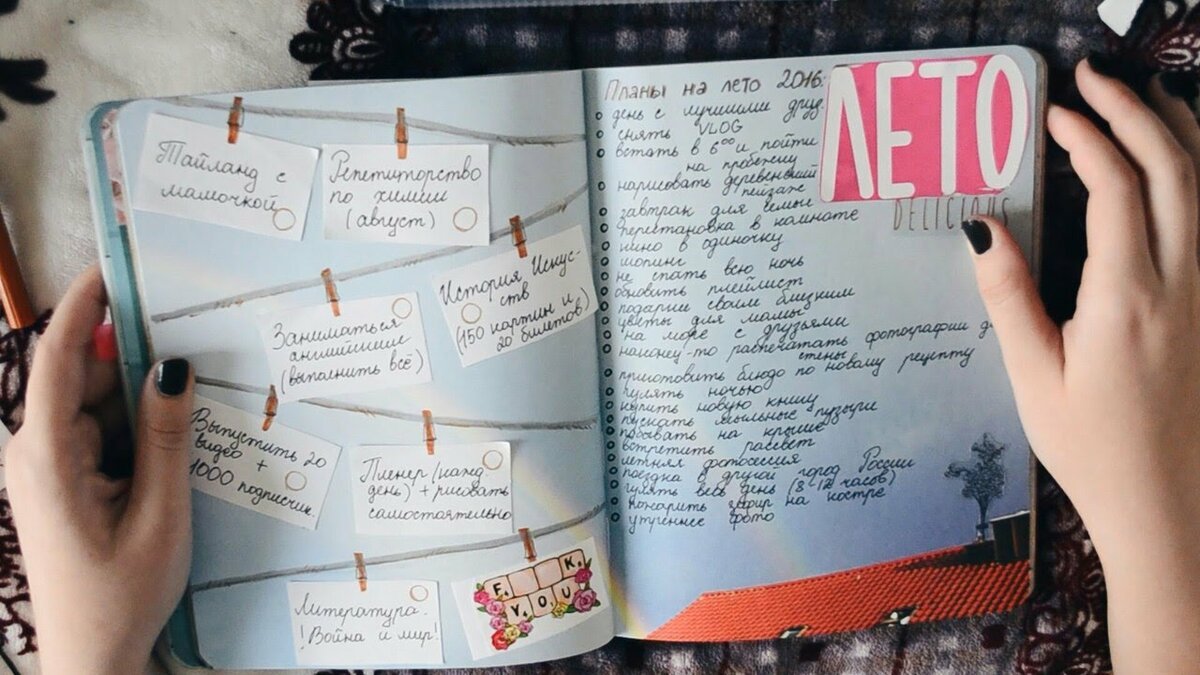 Тайланд с
мамочкой
Репетиторство
по химии
(август)
История Искус-
ств
(150 картин и
20 билетов!)
Заниматься
английским
(выполнить всё)
Выпустить 20
видео +
1000 подписчик.
Пленер (кажд.
день) + рисовать
самостоятельно
Литература.
! Война и мир!
F K
YOU
Планы на лето 2016:
день с лучшими друз.
снять VLOG
встать в 6⁰⁰ и пойти
на пробежку
нарисовать деревенский
пейзаж
завтрак для семьи
перестановка в комнате
кино в одиночку
шопинг
не спать всю ночь
обновить плейлист
подарки своим близким
цветы для мамы
на море с друзьями
наконец-то распечатать фотографии д
стены
приготовить блюдо по новому рецепту
гулять ночью
купить новую книгу
пускать мыльные пузыри
побывать на крыше
встретить рассвет
летняя фотосессия
поездка в другой город России
гулять весь день (8-12 часов)
пожарить зефир на костре
утреннее фото
ЛЕТО
DELICIOUS